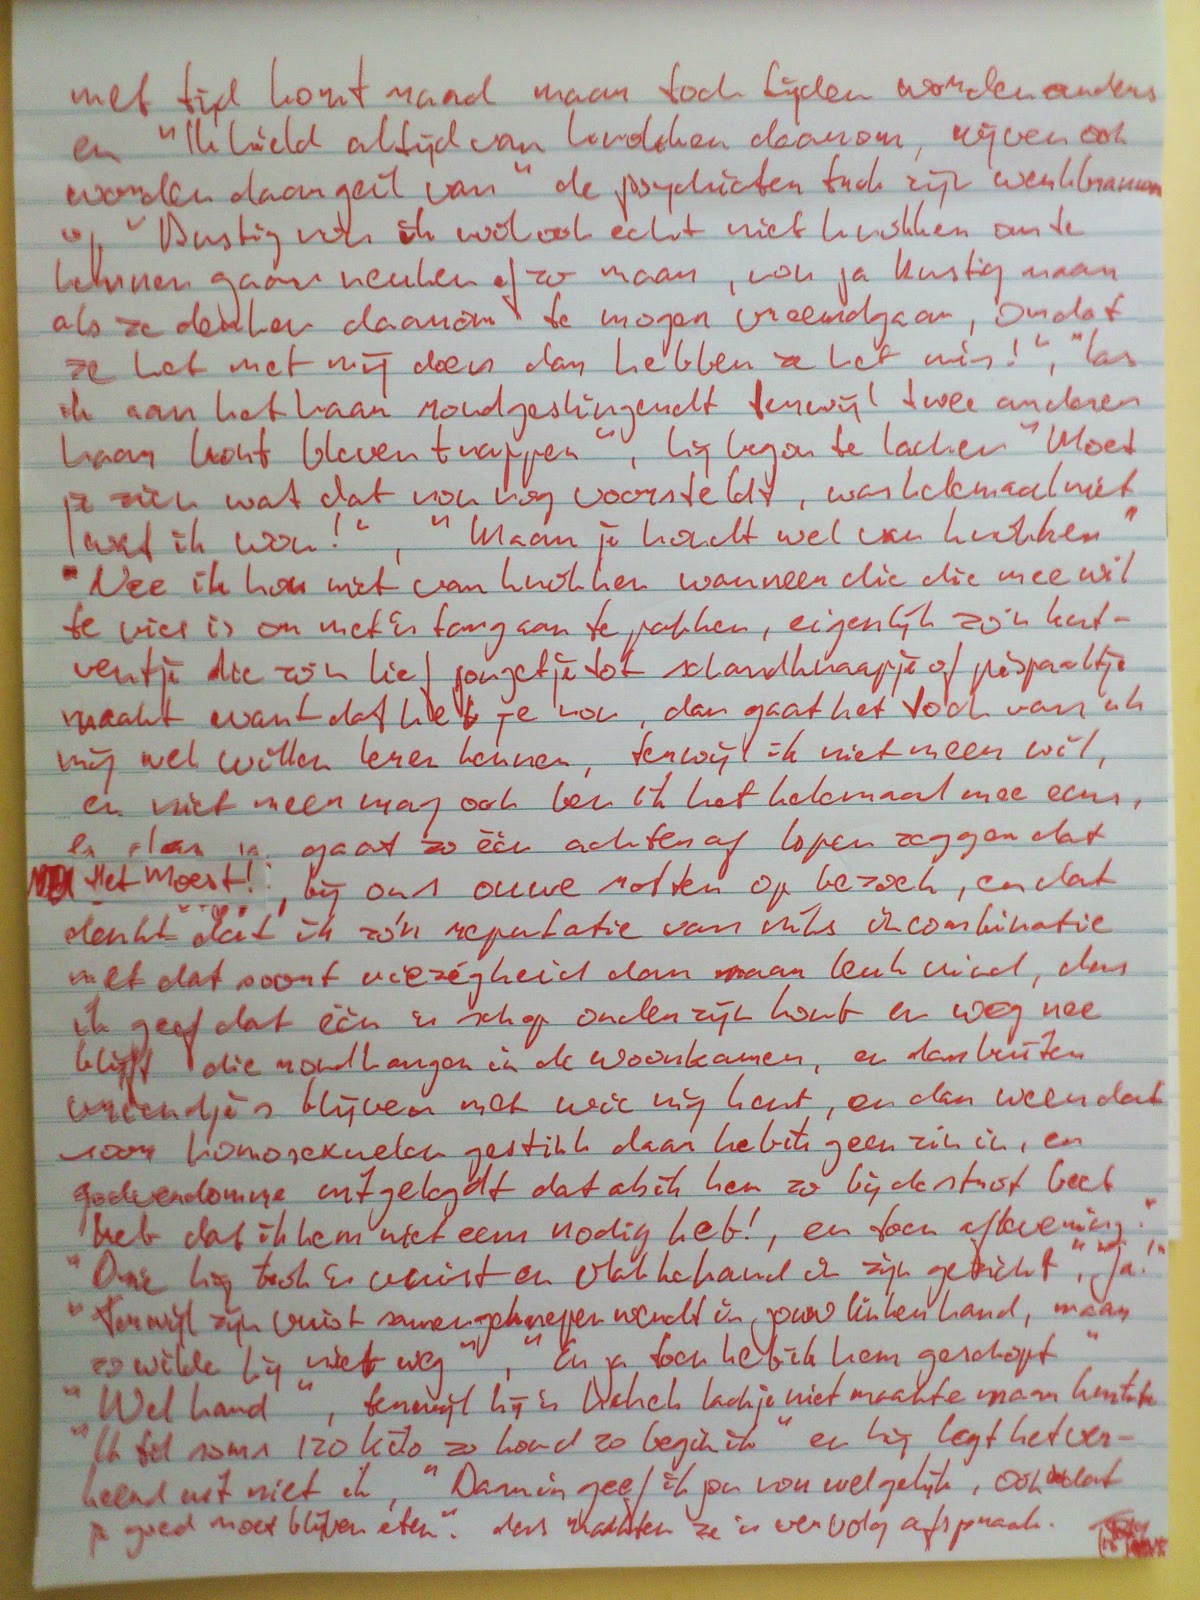 met tijd komt raad maar toch tijden worden anders
en "Ik hield altijd van knokken daarom, wijven ook
worden daar geil van" de psychiater trok zijn wenkbrauwen
op, "Rustig nou ik wil ook echt niet knokken om te
kunnen gaan neuken of zo maar, nou ja rustig maar
als ze denken daarom te mogen vreemdgaan, omdat
ze het met mij doen dan hebben ze het mis!", "las
ik aan het haar rondgeslingerdt terwijl twee anderen
haar kont bleven trappen", hij begon te lachen "Moet
je zien wat dat nou nog voorsteldt, was helemaal niet
wat ik wou!", "Maar je houdt wel van knokken"
"Nee ik hou niet van knokken wanneer die die mee wil
te vies is om met één tang aan te pakken, eigenlijk zo'n
ventje die zo'n lief jongetje tot schandknaapje of pispaaltje
maakt want dat heb je nou, dan gaat het toch van uh
mij wel willen leren kennen, terwijl ik niet meer wil,
en niet meer mag ook ben ik het helemaal mee eens,
en dan gaat zo één achteraf lopen zeggen dat
Het Moest!, bij ons ouwe rotten op bezoek, en dat
denkt dat ik zo'n reputatie van niks in combinatie
met dat soort viezigheid dan maar leuk vind, dus
ik geef dat één schop onder zijn kont en weg nee
blijft die rondhangen in de woonkamer, en dan buiten
vriendjes blijven met wie mij kent, en dan weer dat
voor homosexuelen gestink daar heb ik geen zin in, en
godverdomme uitgelegdt dat als ik hem zo bij de strot beet
heb dat ik hem niet eens nodig heb!, en toen
"Drie hij trok vuist en vlakke hand in zijn gezicht", "Ja!"
"Terwijl zijn vuist samengeknepen werdt in jouw linker hand, maar
zo wilde hij niet weg", "En ja toen heb ik hem geschopt"
"Wel hard", terwijl hij lachje niet maakte maar
"Ik til soms 120 kilo zo hard zo begin ik" en hij legt het ver-
keerd uit niet ik, "Daarin geef ik jou nou wel gelijk, ook dat
je goed moet blijven eten". dus maakten ze vervolg afspraak.